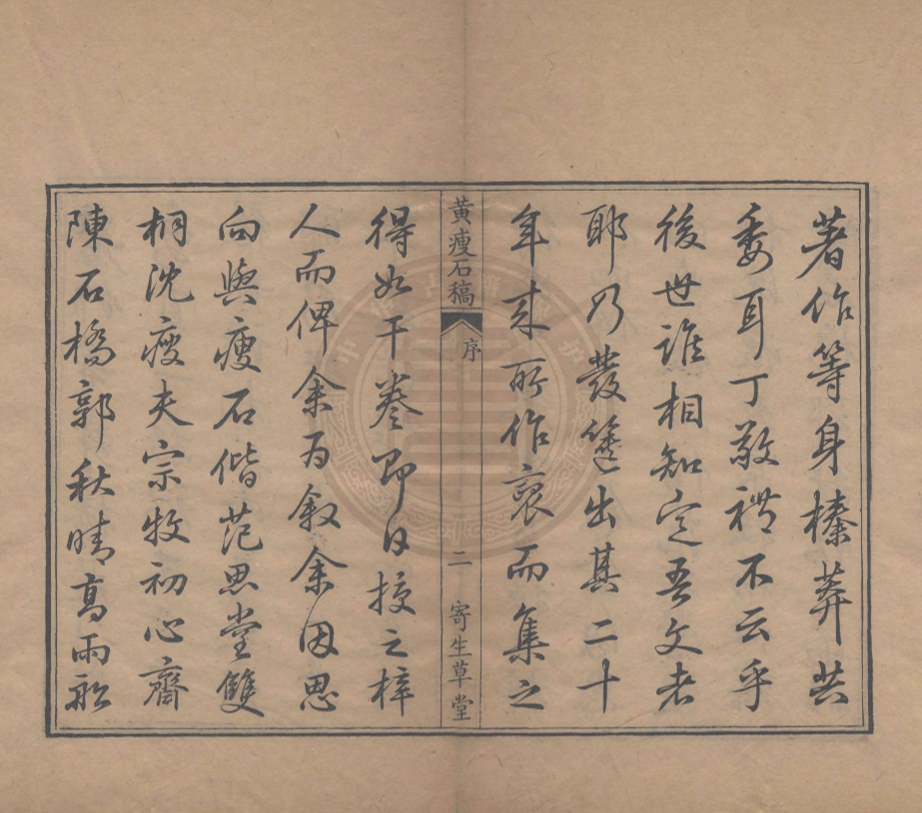 著作等身榛莽共
委耳丁敬禮不云乎
後世誰相知定吾文者
耶乃發篋出其二十
年來所作裒而集之
黃瘦石稿
序
二
寄生草堂
得如干卷即日授之梓
人而俾余為敘余因思
向與瘦石偕范思堂雙
桐沈瘦夫宗牧初心齋
陳石橋郭秋晴高雨船